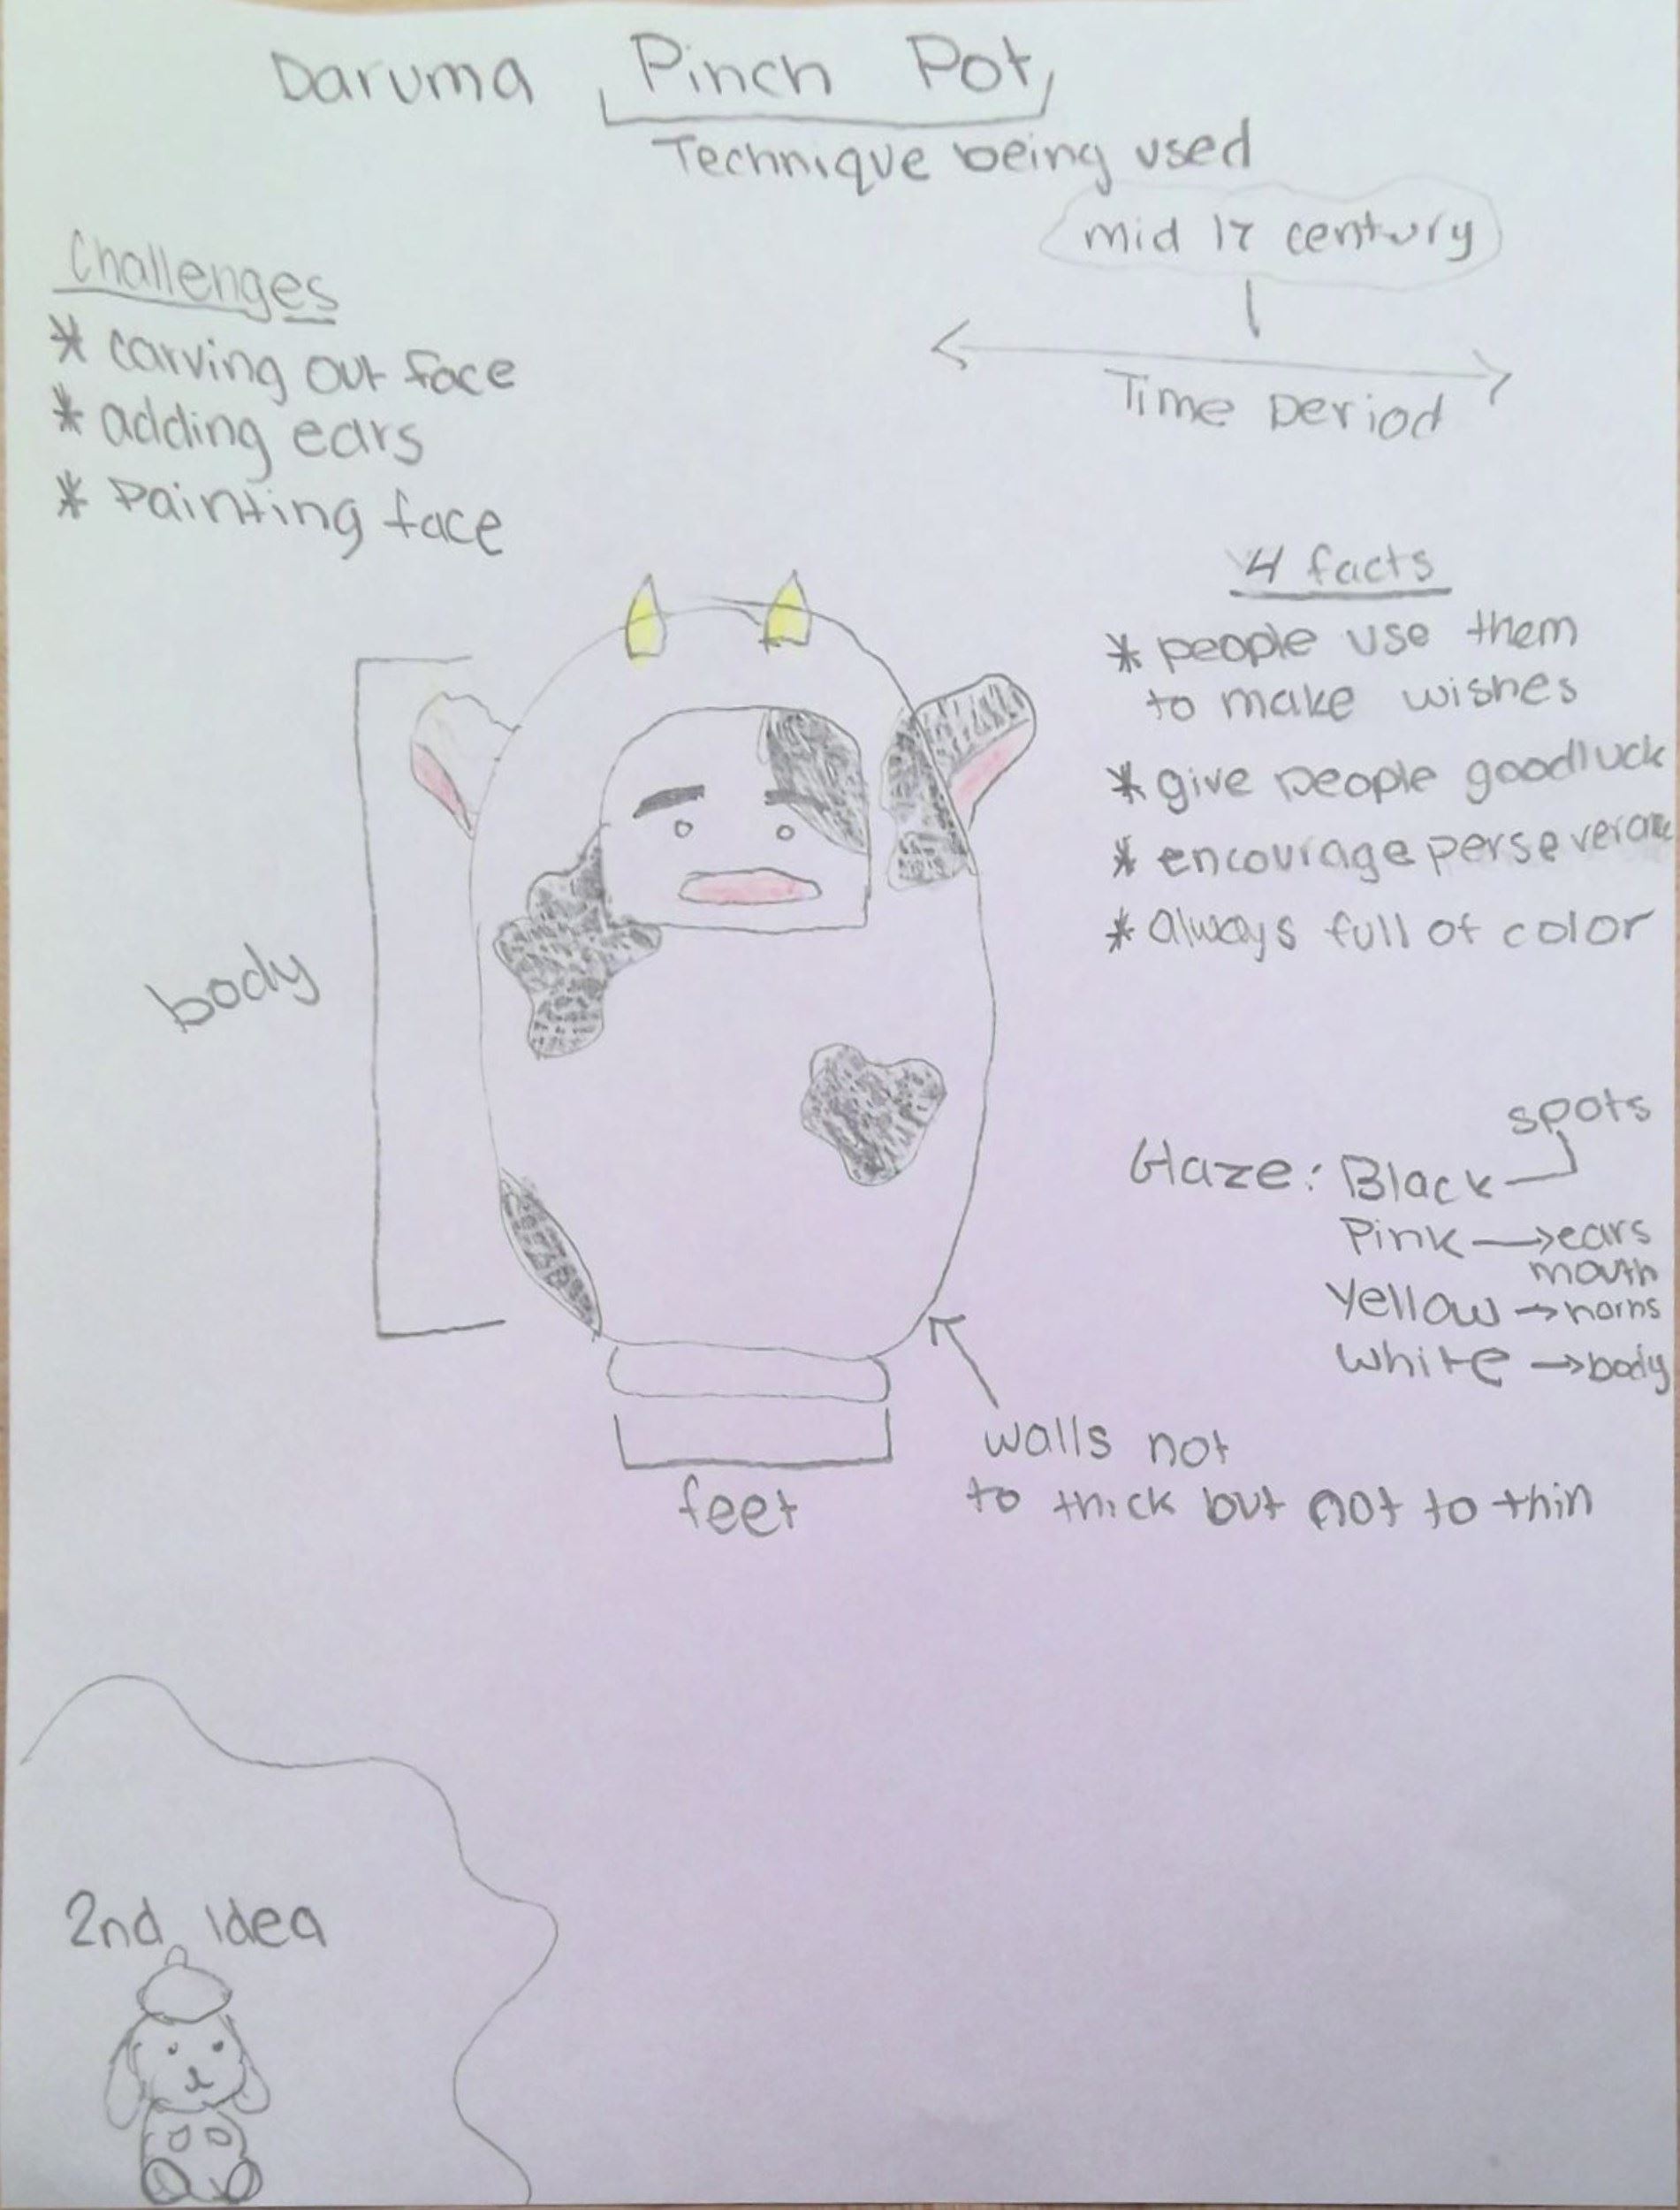 Daruma Pinch Pot
Technique being used
mid 17 century
Time period
Challenges
* carving out face
* adding ears
* Painting face
4 facts
* people use them
to make wishes
* give people goodluck
* encourage perseverance
* always full of color
body
spots
Glaze: Black
Pink → ears
mouth
Yellow → horns
White → body
walls not
to thick but not to thin
feet
2nd idea